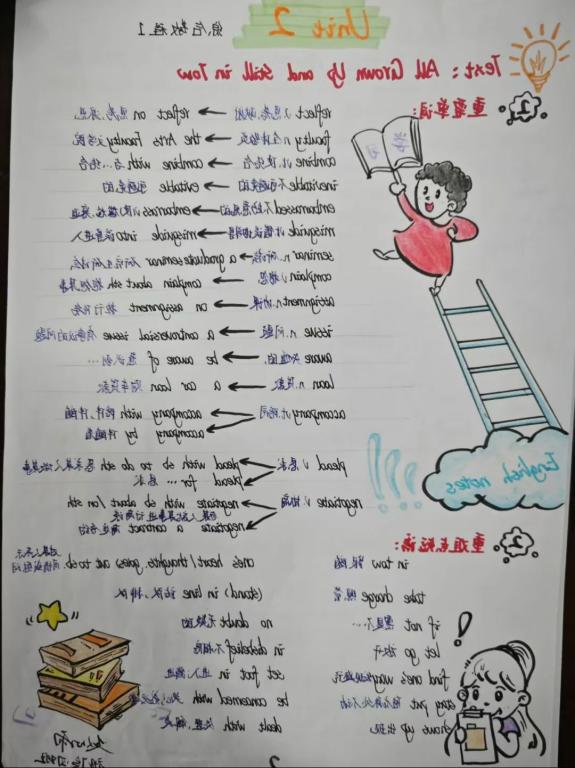 Unit 2
Text: All Grown Up and Still in Tow
1. 重要单词:
reflect v.思考,反射 → reflect on 思考,反思
faculty n.全体教员 → the Arts Faculty 文学院
combine vt.使结合 → combine with 与…结合
inevitable 不可避免的 → evitable 可避免的
embarrassed 不好意思的 → embarrass vt.使尴尬,窘迫
misguide vt.错误引导 → misguide into 误导进入
seminar n.研讨会 → a graduate seminar 研究生研讨会
complain v.抱怨 → complain sth about 抱怨某事
assignment n.任务 → on assignment 执行任务
issue n.问题 → a controversial issue 有争议的问题
aware 知道的 → be aware of 意识到…
loan n.贷款 → a car loan 购车贷款
accompany vt.陪同 → accompany with 陪伴,伴随
accompany by 伴随着
plead v.恳求 → plead with sb to do sth 恳求某人做某事
plead for … 恳求
negotiate v.协商 → negotiate with sb about / on sth
negotiate a contract
English notes
2. 重难点短语:
in tow 陪随
one's heart / thoughts go(es) out to sb.
take charge 照管
(stand) in line 站队,排队
if not 要是不…
no doubt 无疑的
let go 放开
in disbelief 不相信
find one's way
set foot in 进入
stay put
be concerned with
shows up 出现
deals with
2